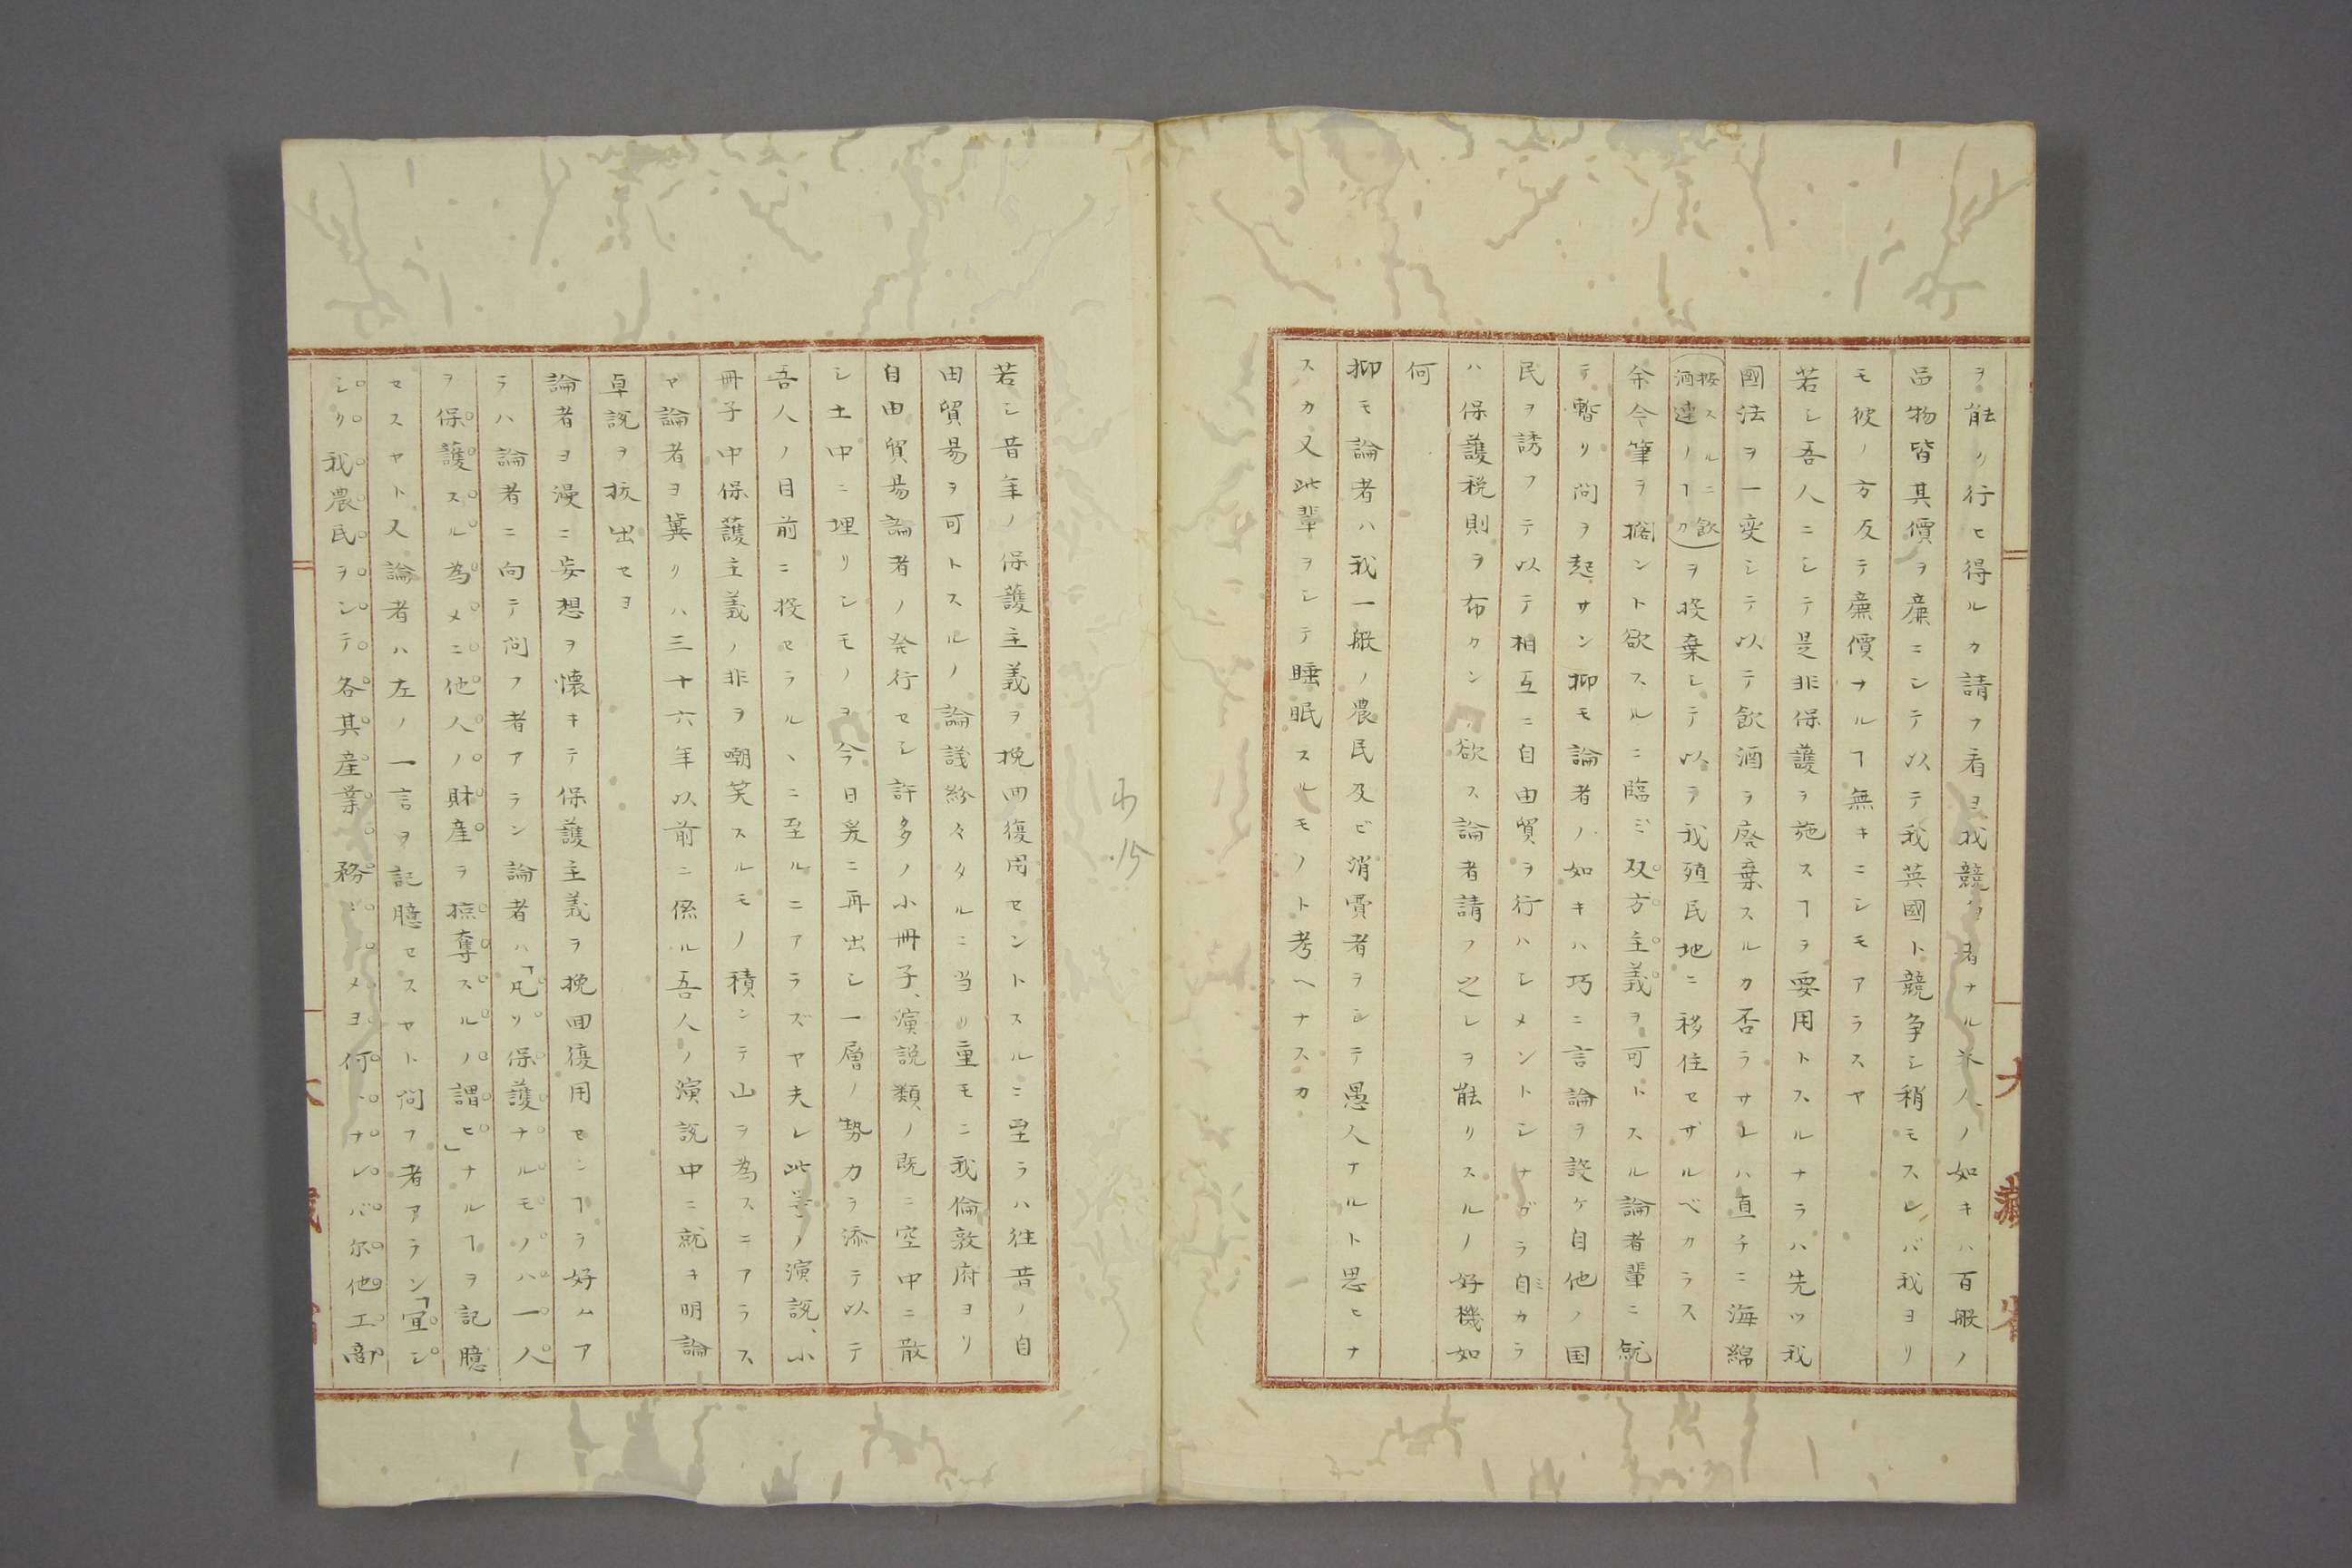 ヲ能ク行ヒ得ルカ請フ看ヨ我競争者ナル米人ノ如キハ百般ノ
品物皆其價ヲ廉ニシテ以テ我英國ト競争シ稍モスレバ我ヨリ
モ彼ノ方反テ廉價ナルヿ無キニシモアラスヤ
若シ吾人ニシテ是非保護ヲ施スヿヲ要用トスルナラハ先ツ我
國法ヲ一変シテ以テ飲酒ヲ廃棄スルカ否ラサレハ直チニ海綿
(按スルニ飲酒連ノヿカ)ヲ投棄シテ以テ我殖民地ニ移住セザルベカラス
余今筆ヲ擱ント欲スルニ臨ミ双方主義ヲ可トスル論者輩ニ就
テ暫リ問ヲ起サン抑モ論者ノ如キハ巧ニ言論ヲ設ケ自他ノ国
民ヲ誘フテ以テ相互ニ自由貿ヲ行ハシメントシナガラ自ミカラ
ハ保護税則ヲ布カント欲ス論者請フ之レヲ能リスルノ好機如
何
抑モ論者ハ我一般ノ農民及ビ消費者ヲシテ愚人アルト思ヒナ
スカ又此輩ヲシテ睡眠スルモノト考ヘナスカ
若シ昔年ノ保護主義ヲ挽回復用セントスルニ至ラハ往昔ノ自
由貿易ヲ可トスルノ論議紛々タルニ当リ重モニ我倫敦府ヨリ
自由貿易論者ノ発行セシ許多ノ小冊子、演説類ノ既ニ空中ニ散
シ土中ニ埋リシモノヲ今日爰ニ再出シ一層ノ勢力ヲ添テ以テ
吾人ノ目前ニ投セラルヽニ至ルニアラズヤ夫レ此等ノ演説、小
冊子中保護主義ノ非ヲ嘲笑スルモノ積ンテ山ヲ為スニアラス
ヤ論者ヨ冀リハ三十六年以前ニ係ル吾人ノ演説中ニ就キ明論
卓説ヲ抜出セヨ
論者ヨ漫ニ妄想ヲ懐キテ保護主義ヲ挽回復用センヿヲ好ムア
ラハ論者ニ向テ問フ者アラン論者ハ「凡リ保護ナルモノハ一人
ヲ保護スル為メニ他人ノ財産ヲ掠奪スルノ謂ヒ」ナルヿヲ記臆
セスヤト又論者ハ左ノ一言ヲ記臆セスヤト問フ者アラン「宜シ
シリ我農民ヲシテ各其産業ニ務メシメヨ何トナレバ尓他工商